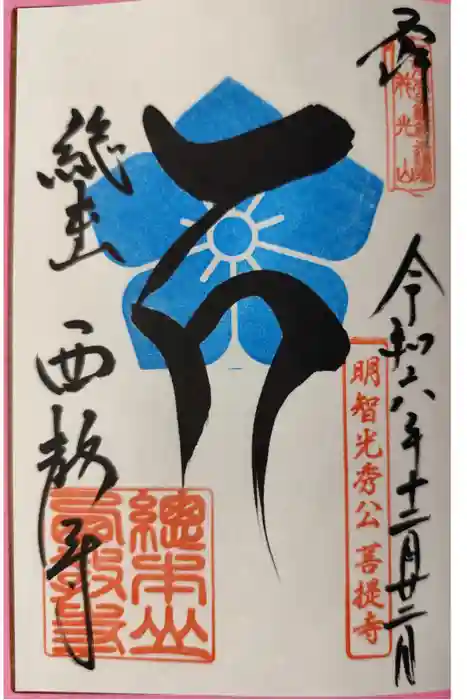 令和六年十二月廿二日
明智光秀公 菩提寺
総本山 西教寺
總本山
西教寺